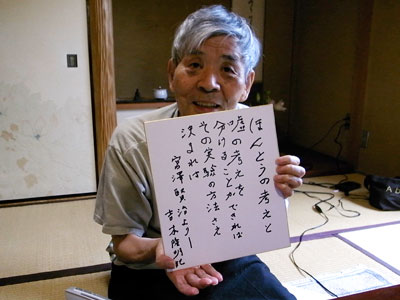 ほんとうの考えと
嘘の考えを
分けることができれば
その実験の方法さえ
決まれば
宮澤賢治より―
吉本隆明記